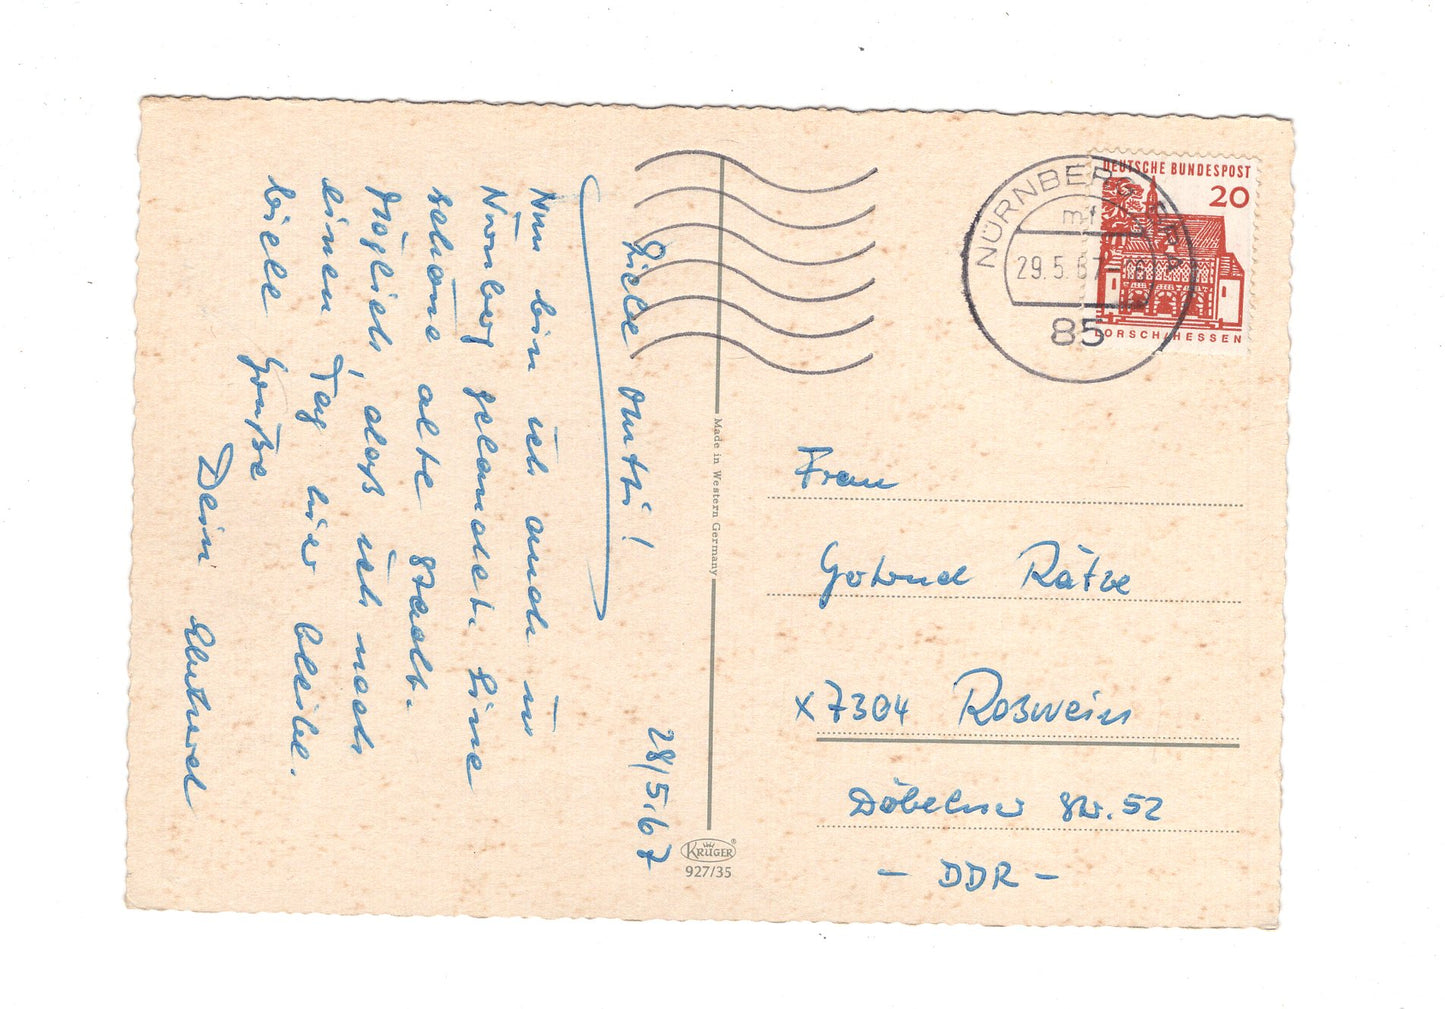 28/5.67
Liebe Mutti!
Nun bin ich auch in
Nürnberg gelandet. Eine
schöne alte Stadt.
Möglich, daß ich noch
einen Tag hier bleibe.
Viele Grüße
Dein
Made in Western Germany
KRÜGER
927/35
DEUTSCHE BUNDESPOST
20
LORSCH/HESSEN
NÜRNBERG
mf
29.5.67
85
Frau
Gertrud Rätze
x 7304 Roßwein
Döbelner Str. 52
- DDR -